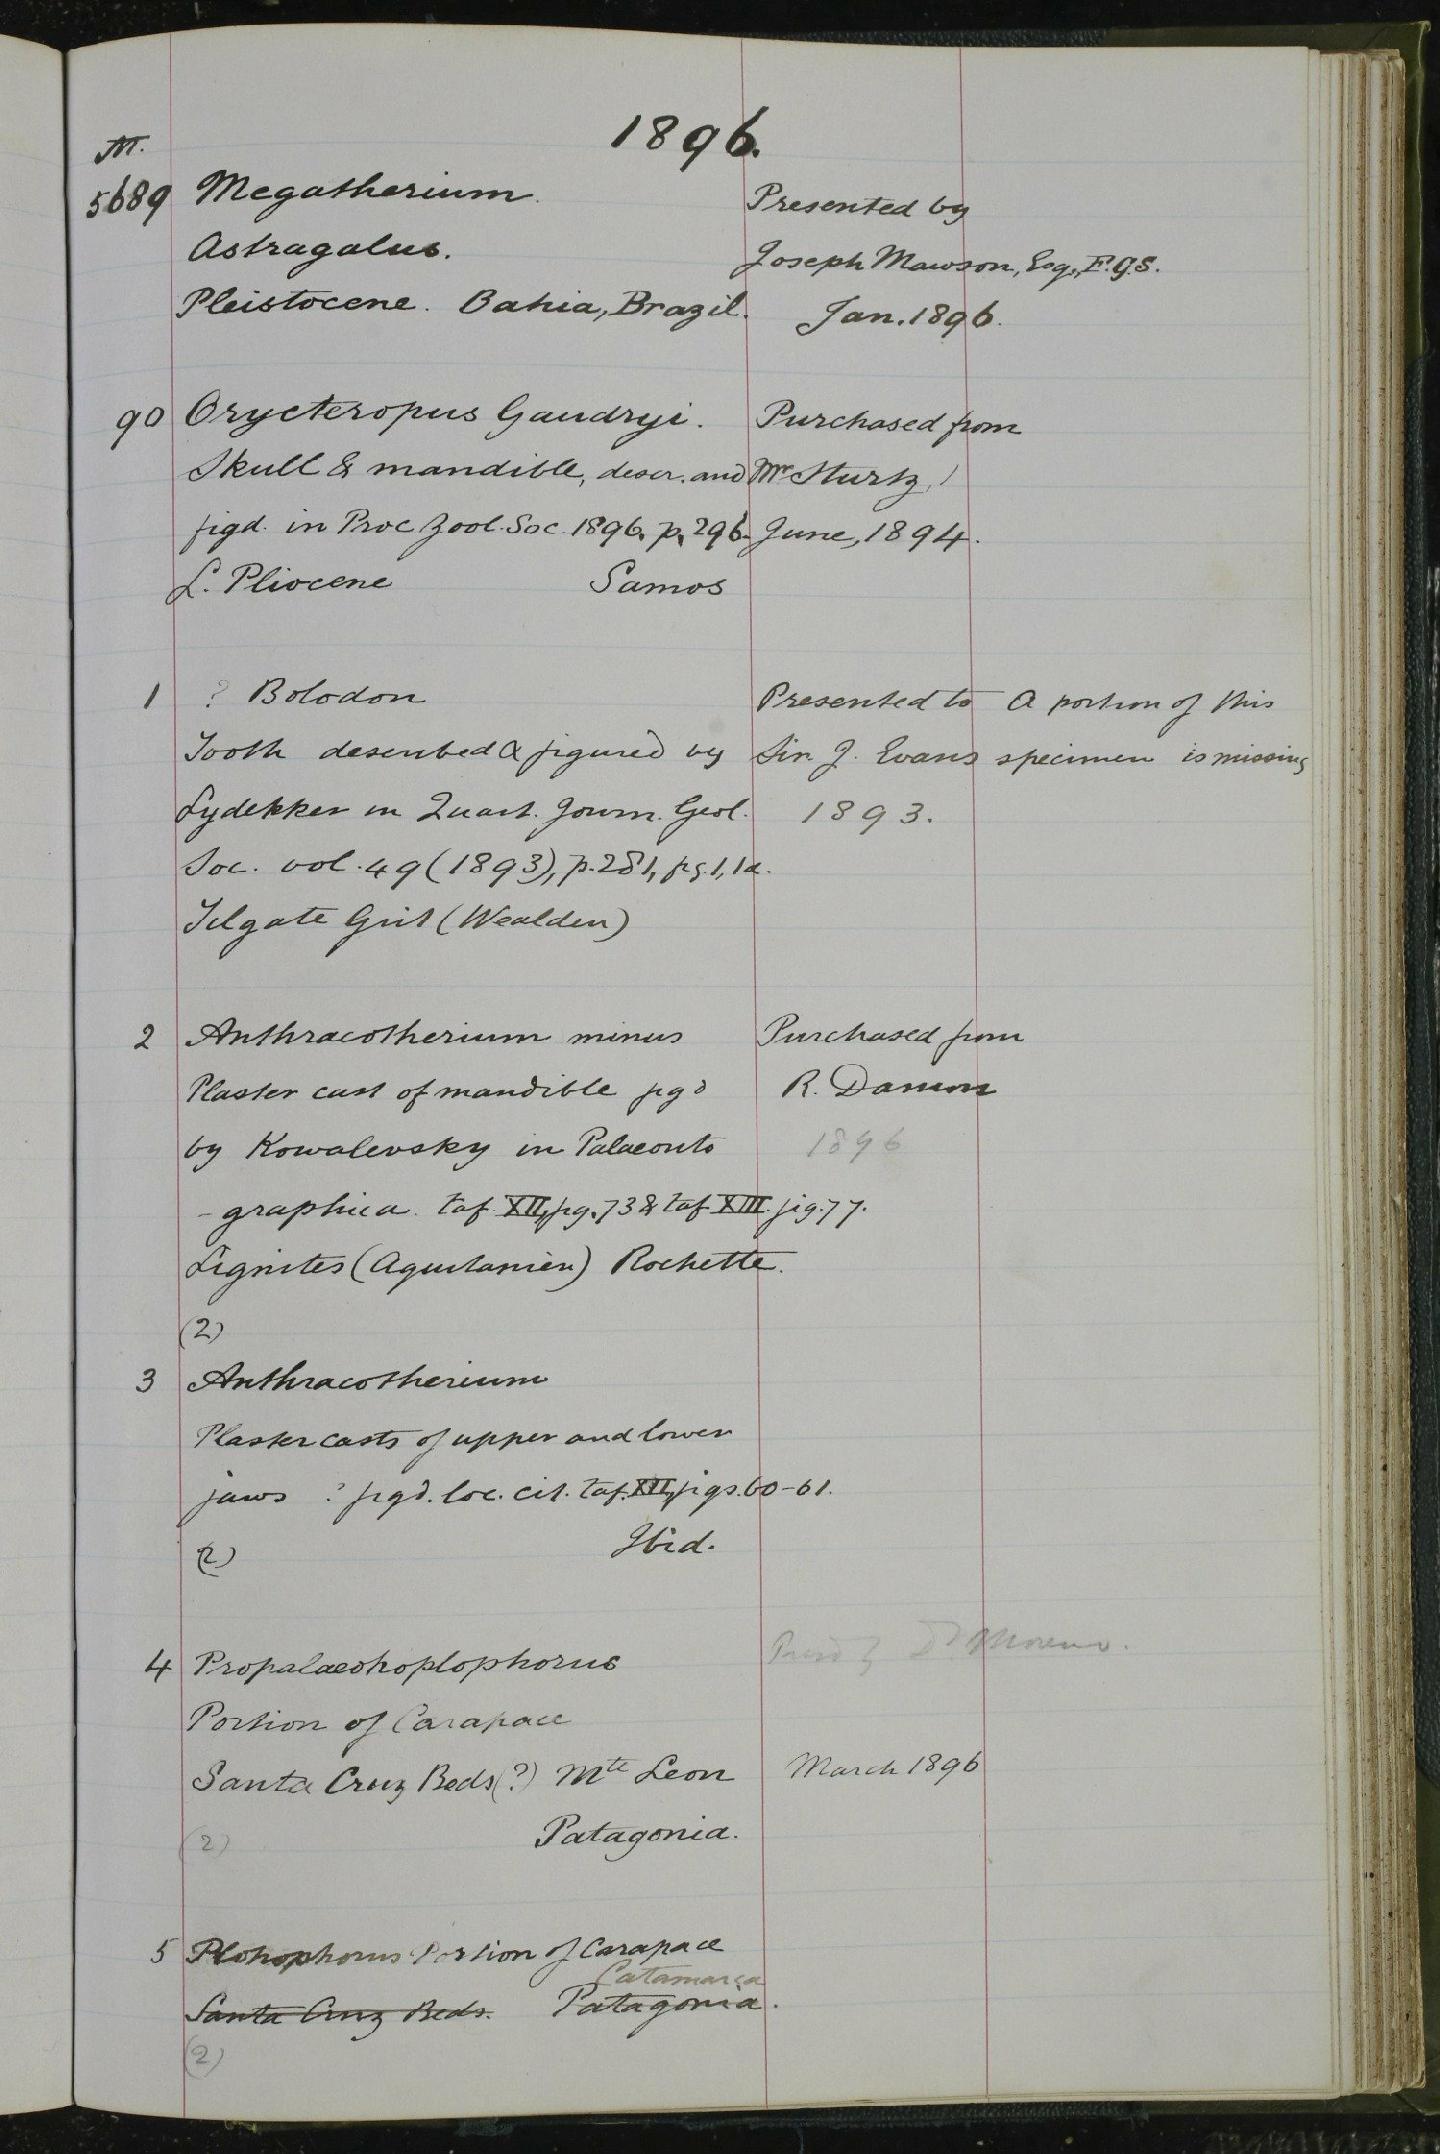 1896.
M.
5689 Megatherium. Presented by
Astragalus. Joseph Mawson, Esq., F.G.S.
Pleistocene. Bahia, Brazil. Jan. 1896.
90 Orycteropus Gaudryi. Purchased from
Skull & mandible, descr. and Mr Sturtz,
figd. in Proc Zool. Soc. 1896, p. 296. June, 1894.
L. Pliocene Samos
1 ? Bolodon Presented to A portion of this
Tooth described & figured by Sir J. Evans specimen is missing
Lydekker in Quart. Journ. Geol. 1893.
Soc. vol. 49 (1893), p. 281, fig. 1, 1a.
Tilgate Grit (Wealden)
2 Anthracotherium minus Purchased from
Plaster cast of mandible figd R. Damon
by Kowalevsky in Palaeonto 1896
-graphica. taf. XII, fig. 73 & taf XIII. fig. 77.
Lignites (Aquitanien) Rochette.
(2)
3 Anthracotherium
Plaster casts of upper and lower
jaws ? figd. loc. cit. taf. XII, figs. 60-61.
(2) Ibid.
4 Propalaeohoplophorus Presd by Dr Moreno.
Portion of Carapace
Santa Cruz Beds (?) Mte Leon March 1896
(2) Patagonia.
5 Plohophorus Portion of Carapace
Catamarca
Santa Cruz Beds. Patagonia.
(2)